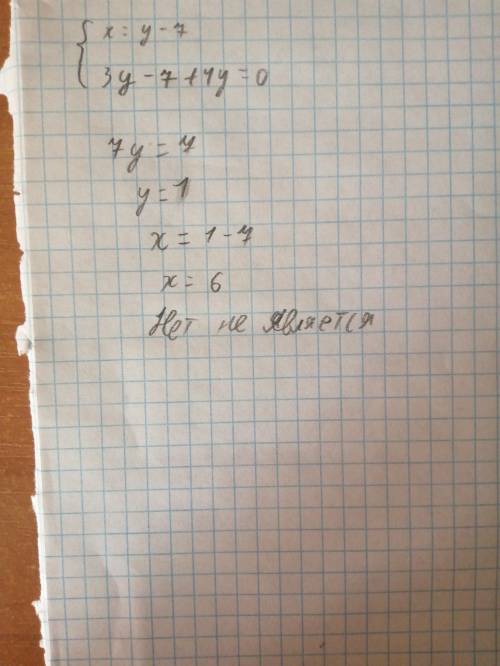 x = y - 7
3y - 7 + 4y = 0
7y = 7
y = 1
x = 1 - 7
x = 6
Нет не является